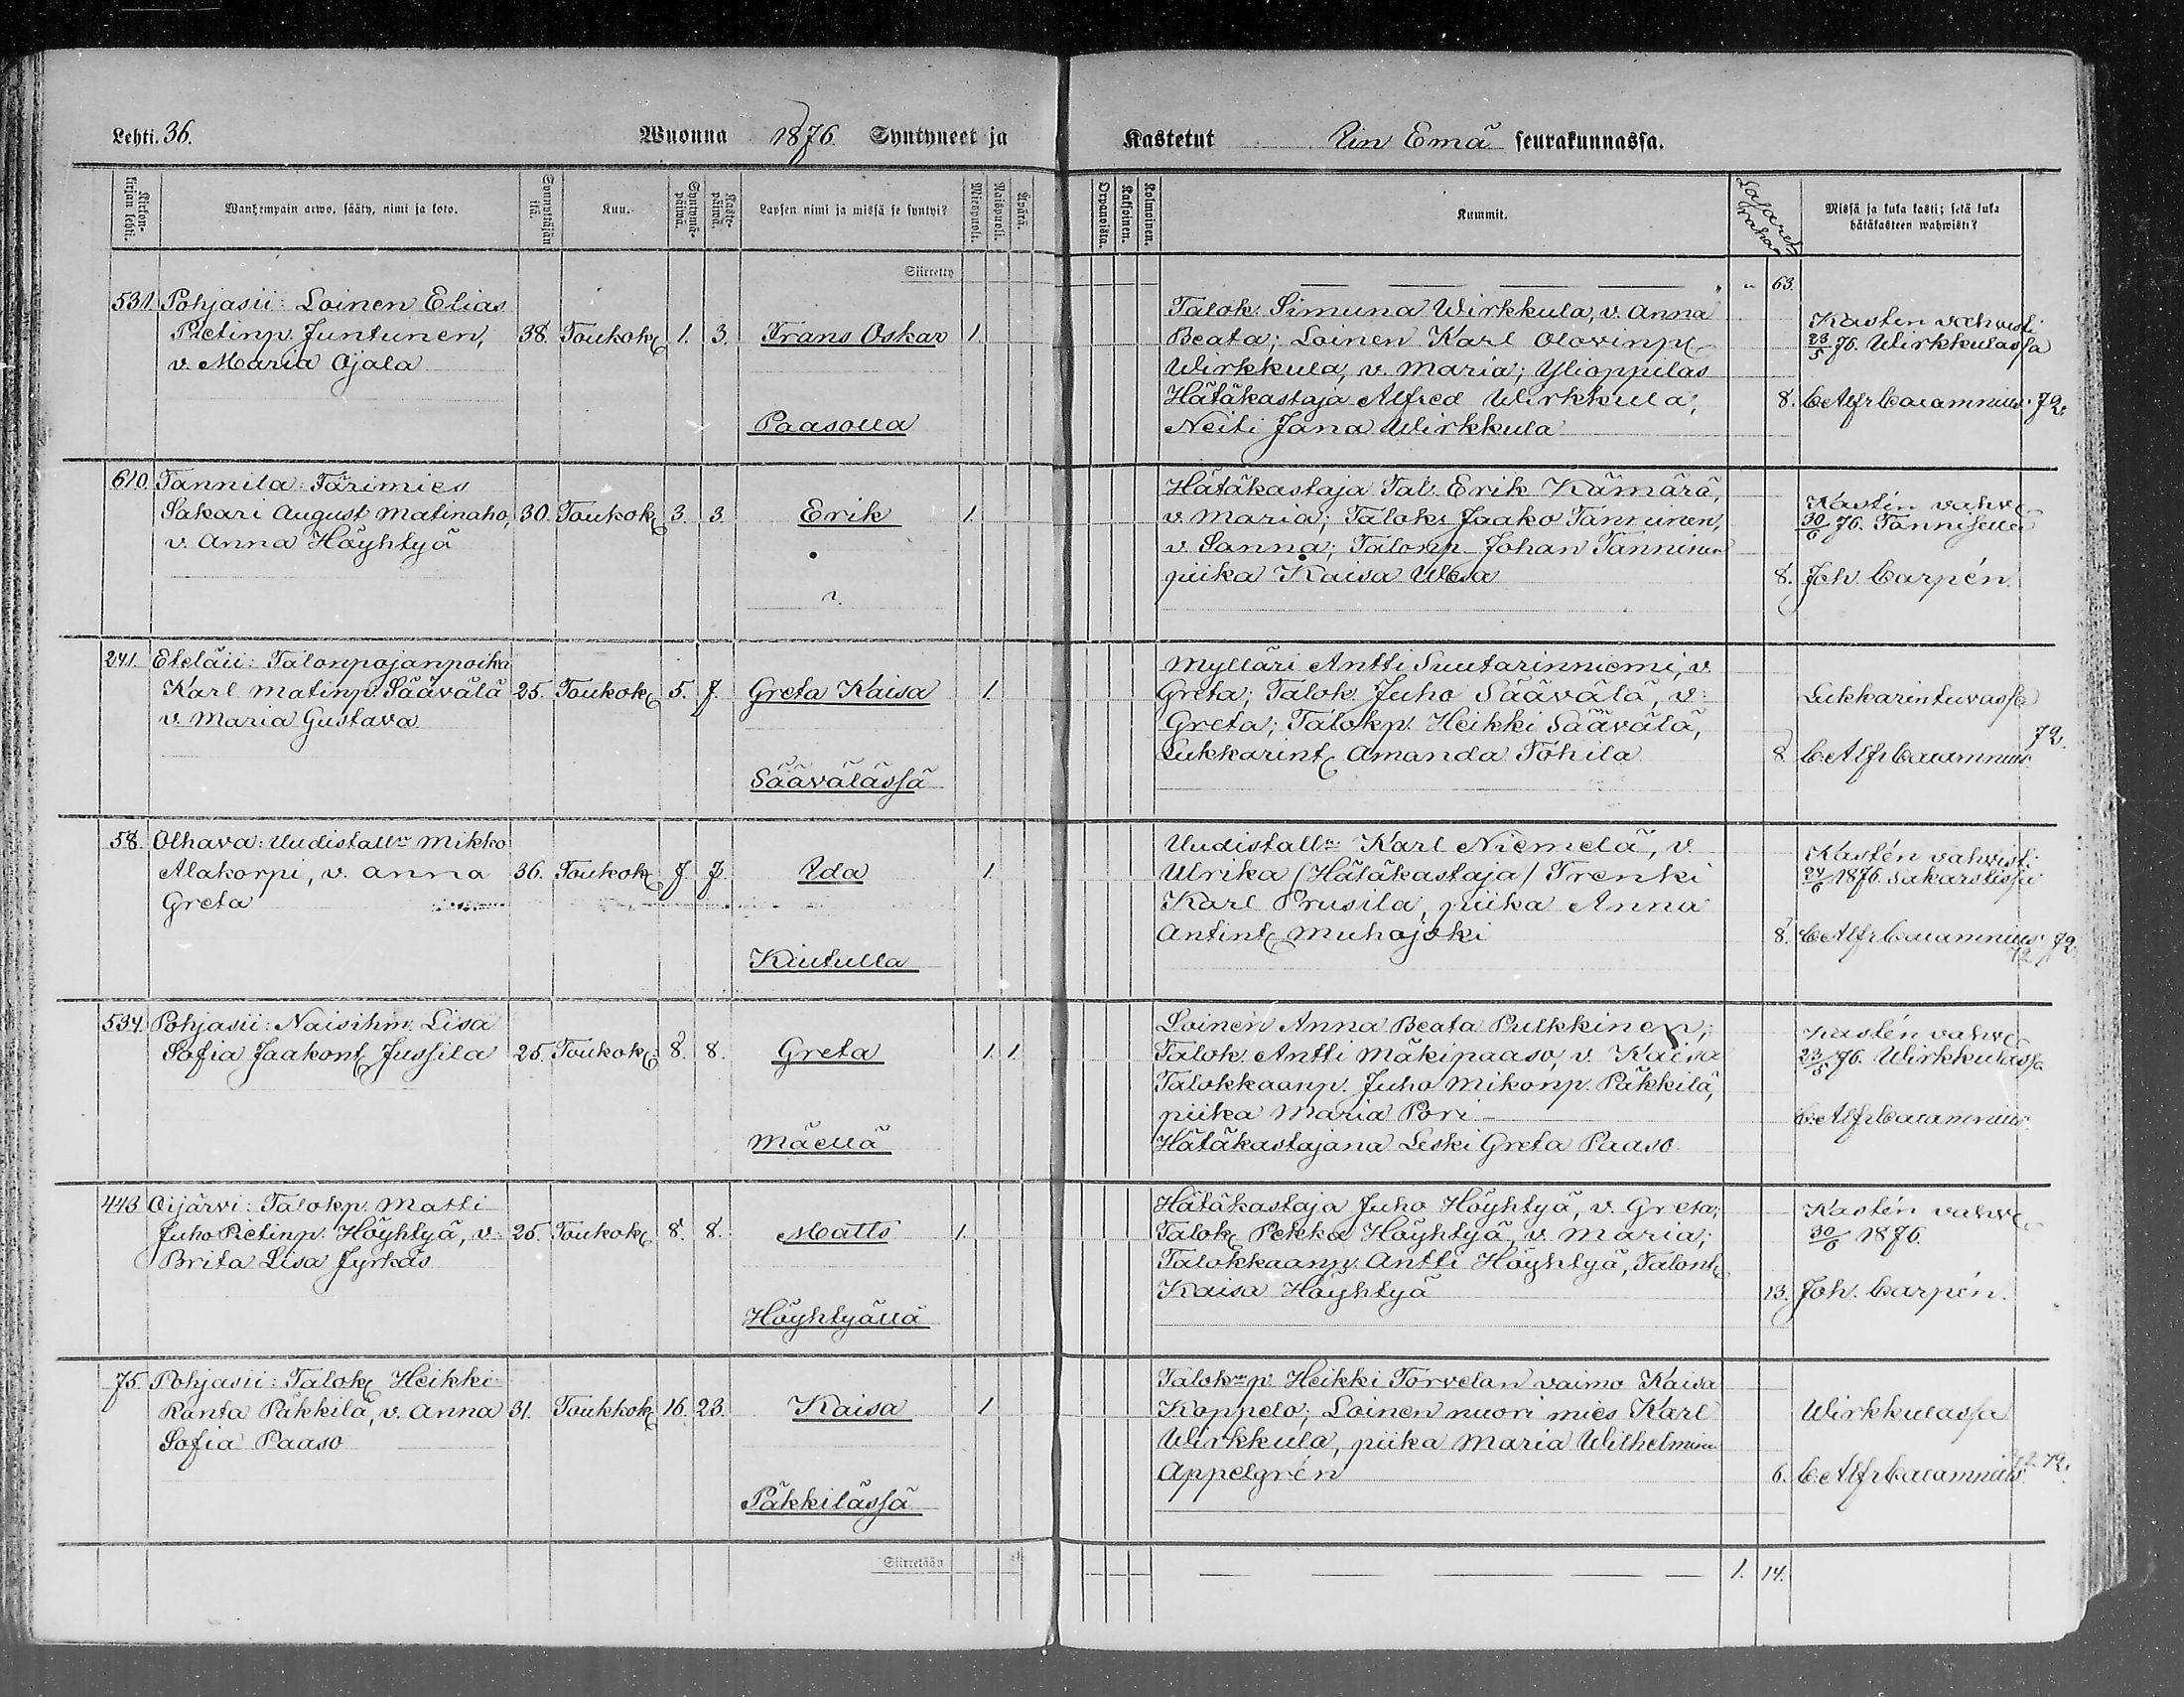 Lehti. 36.
Wuonna 1876 Syntyneet ja
Kastetut Iin Emä seurakunnassa.
Kirkon-kirjan lehti.
Wanhempain arwo, sääty, nimi ja koto.
Synnyttäjän ikä.
Kuu.
Syntymä-päiwä.
Kaste-päiwä.
Lapsen nimi ja missä se syntyi?
Miespuoli.
Waimopuoli.
Äpärä.
Orpanoista.
Kaksoinen.
Kolmoinen.
Kummit.
Lasaret rahaa
Missä ja kuka kasti; sekä kuka
hätäkasteen wahwisti?
Siirretty
" 63.
531. Pohjasii: Loinen Elias
Pietinp. Juntunen, 38. Toukok 1. 3. Frans Oskar 1.
v. Maria Ojala
Paasolla
Talok. Simuna Wirkkula, v. Anna
Beata; Loinen Karl Olovinp
Wirkkula, v. Maria; Ylioppilas
Hätäkastaja Alfred Wirkkula;
Neiti Jana Wirkkula
8.
Kasten vahvisti
23/5 76. Wirkkulassa
C Alfr Calamnius. 72.
610. Tannila: Färimies
Sakari August Matinaho, 30. Toukok 3. 3. Erik 1.
v. Anna Höyhtyä
Hätäkastaja Tal. Erik Kämärä,
v. Maria; Talok. Jaako Tanninen,
v. Sanna; Talonp. Johan Tanninen
piika Kaisa Wesa
8.
Kastén vahv
30/6 76. Tannilalla
Joh. Carpén.
241. Eteläii: Talonpojanpoika
Karl Matinp. Säävälä 25. Toukok 5. 7. Greta Kaisa 1.
v. Maria Gustava
Säävälässä
Mylläri Antti Suutarinniemi, v.
Greta; Talok. Juho Säävälä, v.
Greta; Talokp. Heikki Säävälä,
Lukkarint Amanda Töhila
8
Lukkarintuvassa
C. Alfr Calamnius. 72.
58. Olhava: Uudistalln Mikko
Alakorpi, v. Anna 36. Toukok 7. 7. Ida 1.
Greta
Kiutulla
Uudistalln: Karl Niemelä, v.
Ulrika /Hätäkastaja/ Trenki
Karl Prusila, piika Anna
Antint Muhojoki
8.
Kastén vahvisti
24/6 1876.
C Alfr Calamnius 72.
534. Pohjasii: Naisihm. Lisa
Sofia Jaakont Jussila 25. Toukok. 8. 8. Greta 1. 1.
Mäellä
Loinen Anna Beata Pulkkinen;
Talok. Antti Mäkipaaso, v. Kaisa
Talokkaanp. Juho Mikonp. Päkkilä,
piika Maria Pori –
Hätäkastajana Leski Greta Paaso
Kastén vahv
23/5 76. Wirkkulassa
C. Alfr Calamnius.
443 Oijärvi: Talokp. Matti
Juho Pietinp. Höyhtyä, v. 25. Toukok. 8. 8. Matts 1.
Brita Lisa Jyrkäs
Höyhtyällä
Hätäkastaja Juho Höyhtyä, v. Greta;
Talok Pekka Höyhtyä, v. Maria;
Talokkaanp. Antti Höyhtyä, Talont
Kaisa Höyhtyä
13.
Kastén vahv
30/6 1876.
Joh. Carpén.
75. Pohjasii: Talok Heikki
Ranta Päkkilä, v. Anna 31. Toukkok 16. 23. Kaisa 1
Sofia Paaso
Päkkilässä
Talok p. Heikki Torvelan vaimo Kaisa
Koppelo; Loinen nuori mies Karl
Wirkkula, piika Maria Wilhelmina
Appelgrén
6.
Wirkkulassa
C Alfr Calamnius. 72.
Siirretään
1. 14.